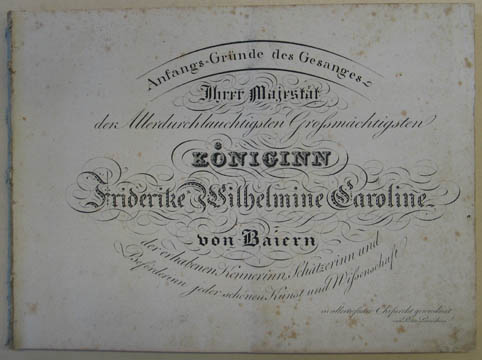 Anfangs-Gründe des Gesanges
Ihrer Majestät
der Allerdurchlauchtigsten Großmächtigsten
KÖNIGINN
Friderike Wilhelmine Caroline
von Baiern
der erhabenen Kennerinn, Schätzerinn und
Beförderinn jeder schönen Kunst und Wissenschaft
in allertiefster Ehrfurcht gewidmet